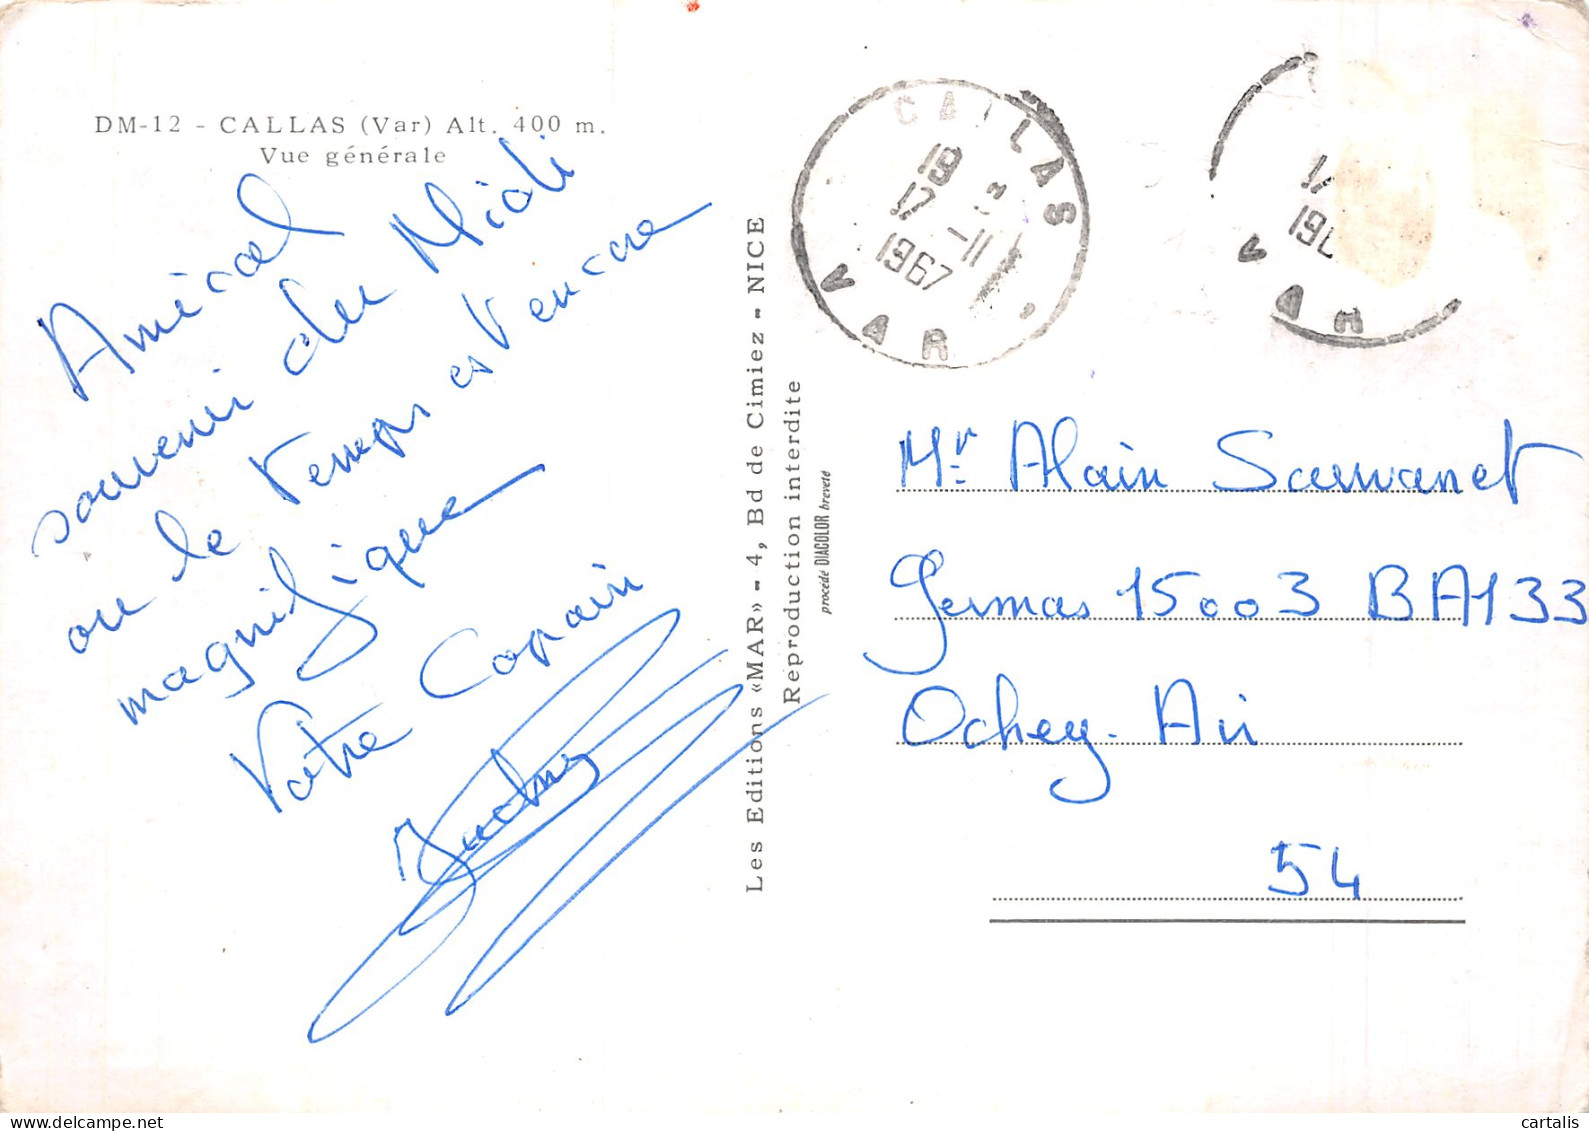 DM-12 - CALLAS (Var) Alt. 400 m.
Vue générale
Amical
souvenir du Midi
ou le temps est encore
magnifique
Votre Copain
Les Editions «MAR» - 4, Bd de Cimiez - NICE
Reproduction interdite
procédé DIACOLOR breveté
CALLAS
19
17 -11
1967
VAR
17
196
VAR
Mr. Alain
Germas 15003 BA133
Ochey-Air
54
cartalis